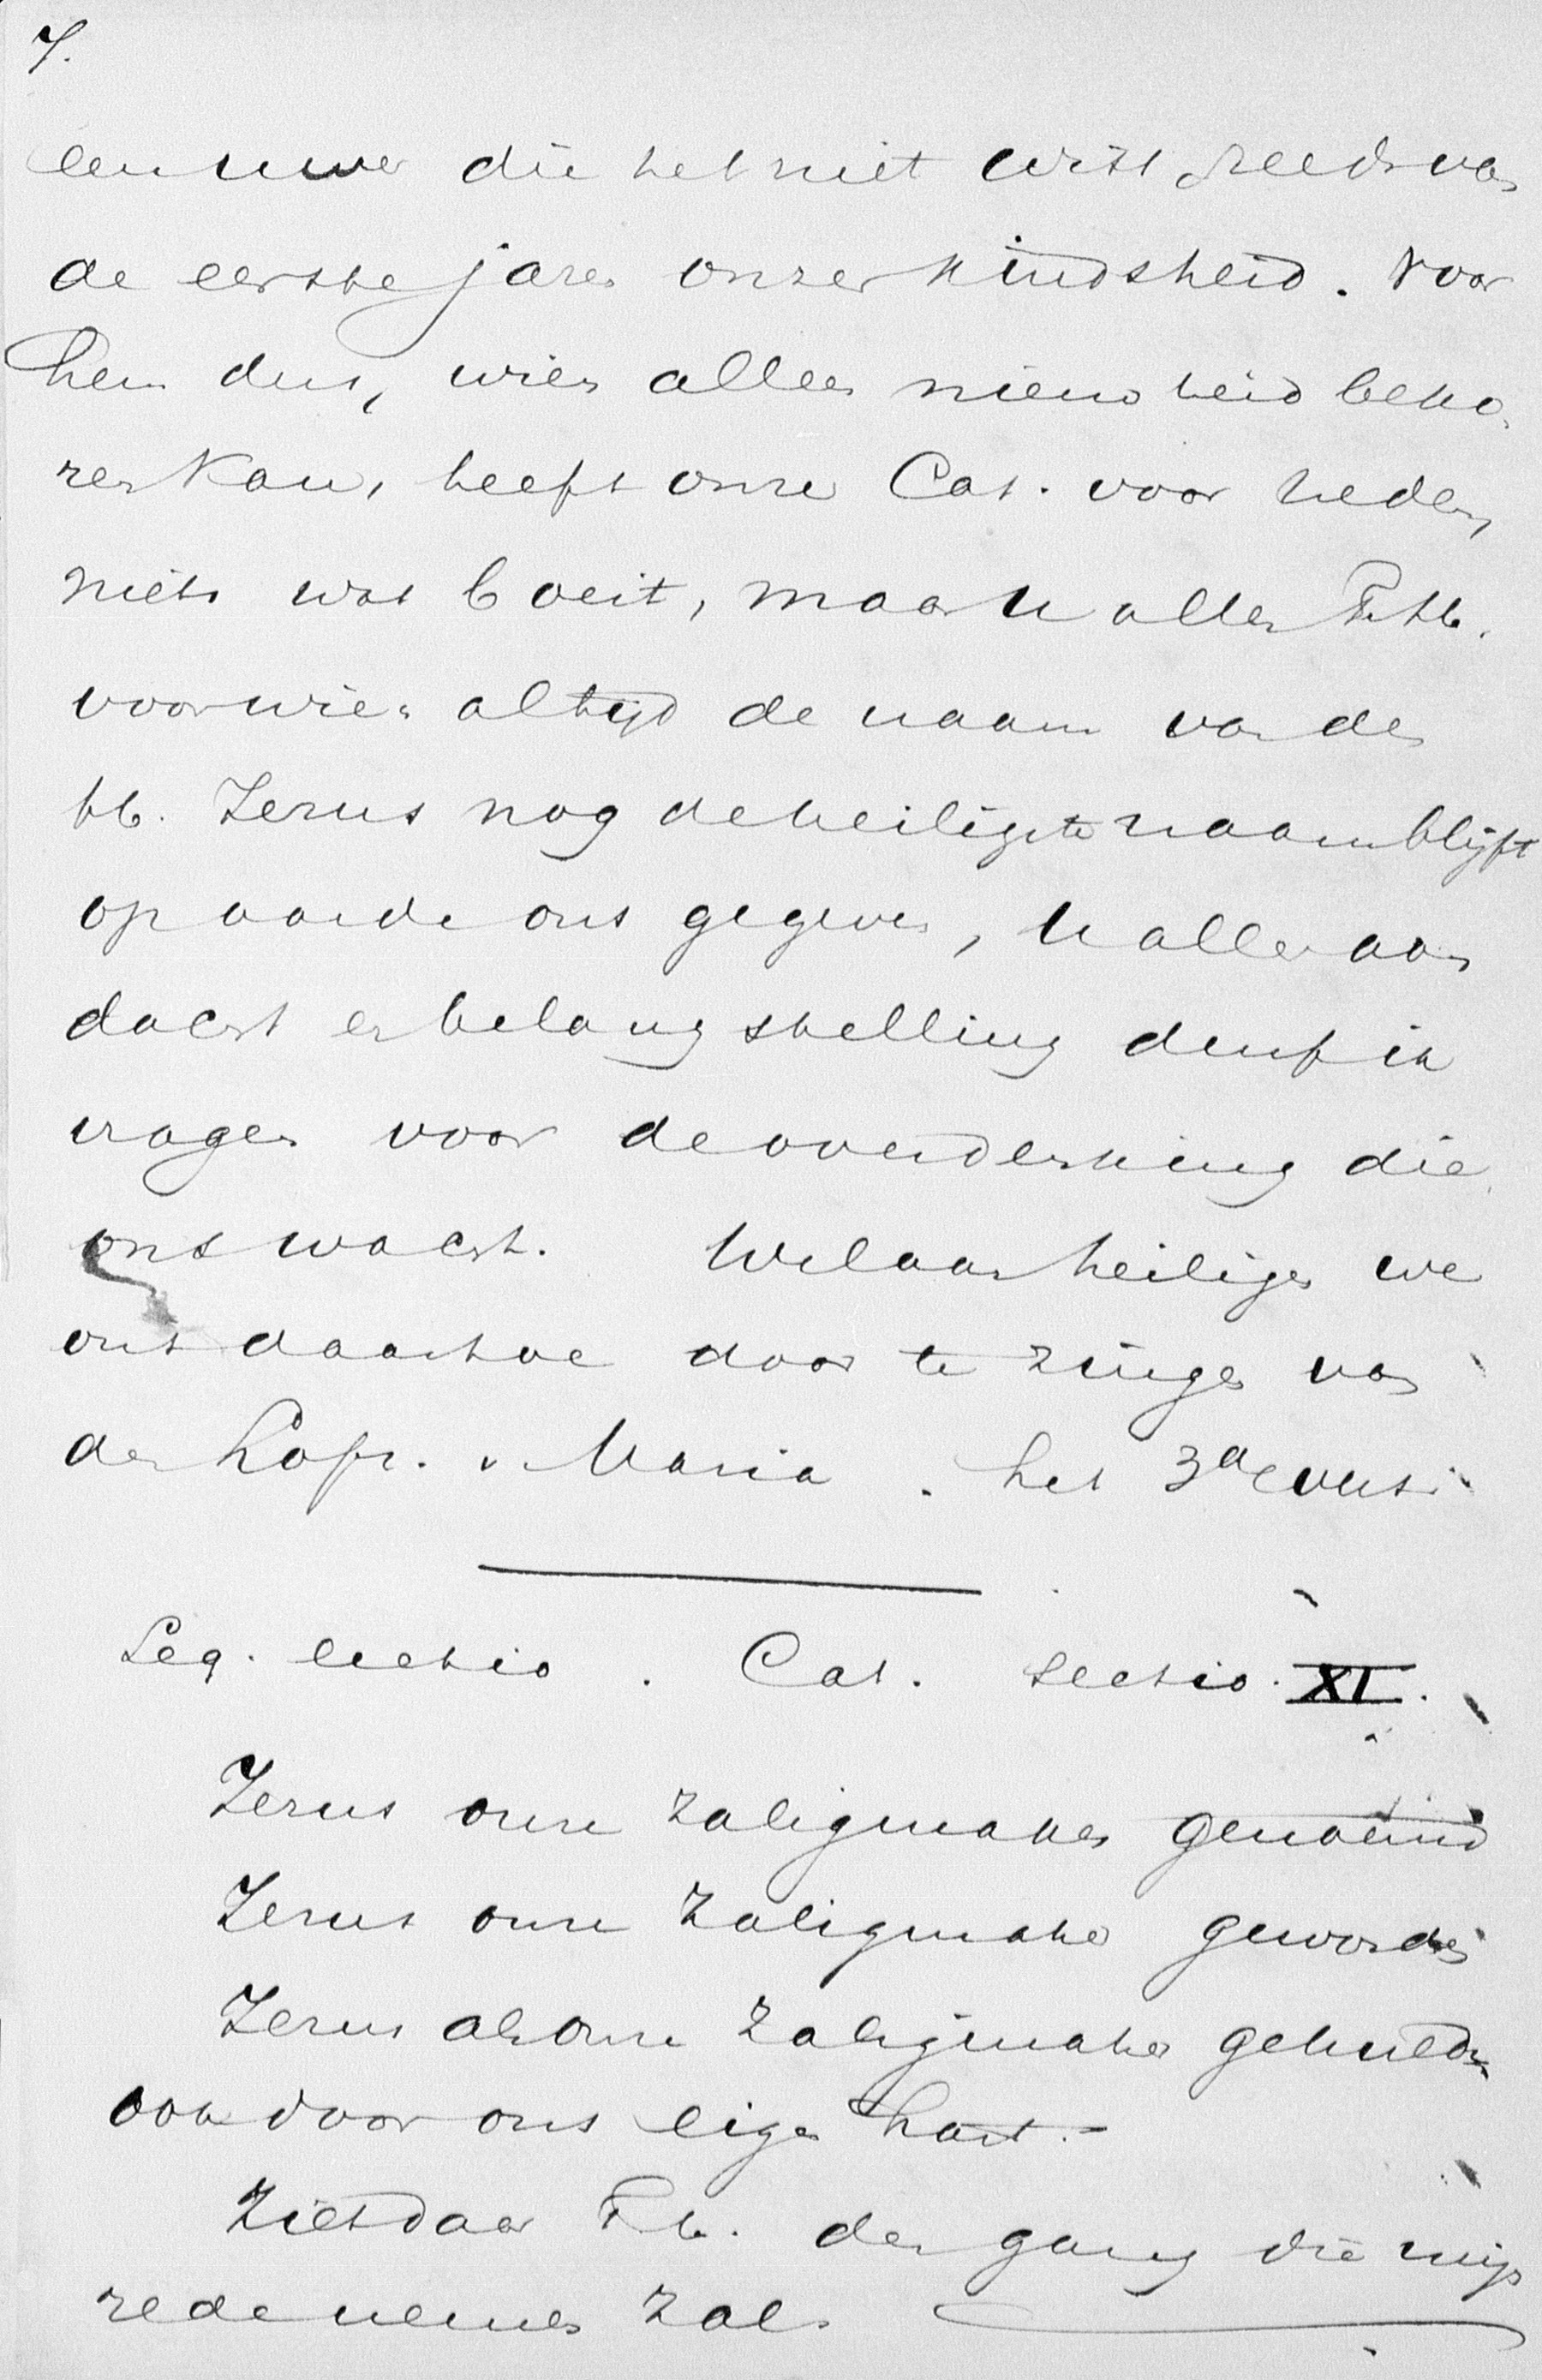 7.
een uwer die het niet wist reeds van
de eerste jaren onzer kindsheid. Voor
hem dus, wien alleen nieuwheid beko
ren kan, heeft onze Cat. voor heden
niets wat boeit, maar U allen
voor wien altijd de naam van den
Hb. Jezus nog de heiligste naam blijft
op aarde ons gegeven, U aller aan
dacht en belangstelling durf ik
vragen voor de overdenking die
ons wacht. Welaan heiligen we
ons daartoe door te zingen van
den Lofz. v. Maria. het 3de vers.
Seq. lectio. Cat. Sectio. XI.
Jezus onze Zaligmaker genoemd
Jezus onze Zaligmaker geworden
Jezus als onze Zaligmaker gehuldigd
ook door ons eigen hart.-
Ziet daar den gang die mijn
rede nemen zal.